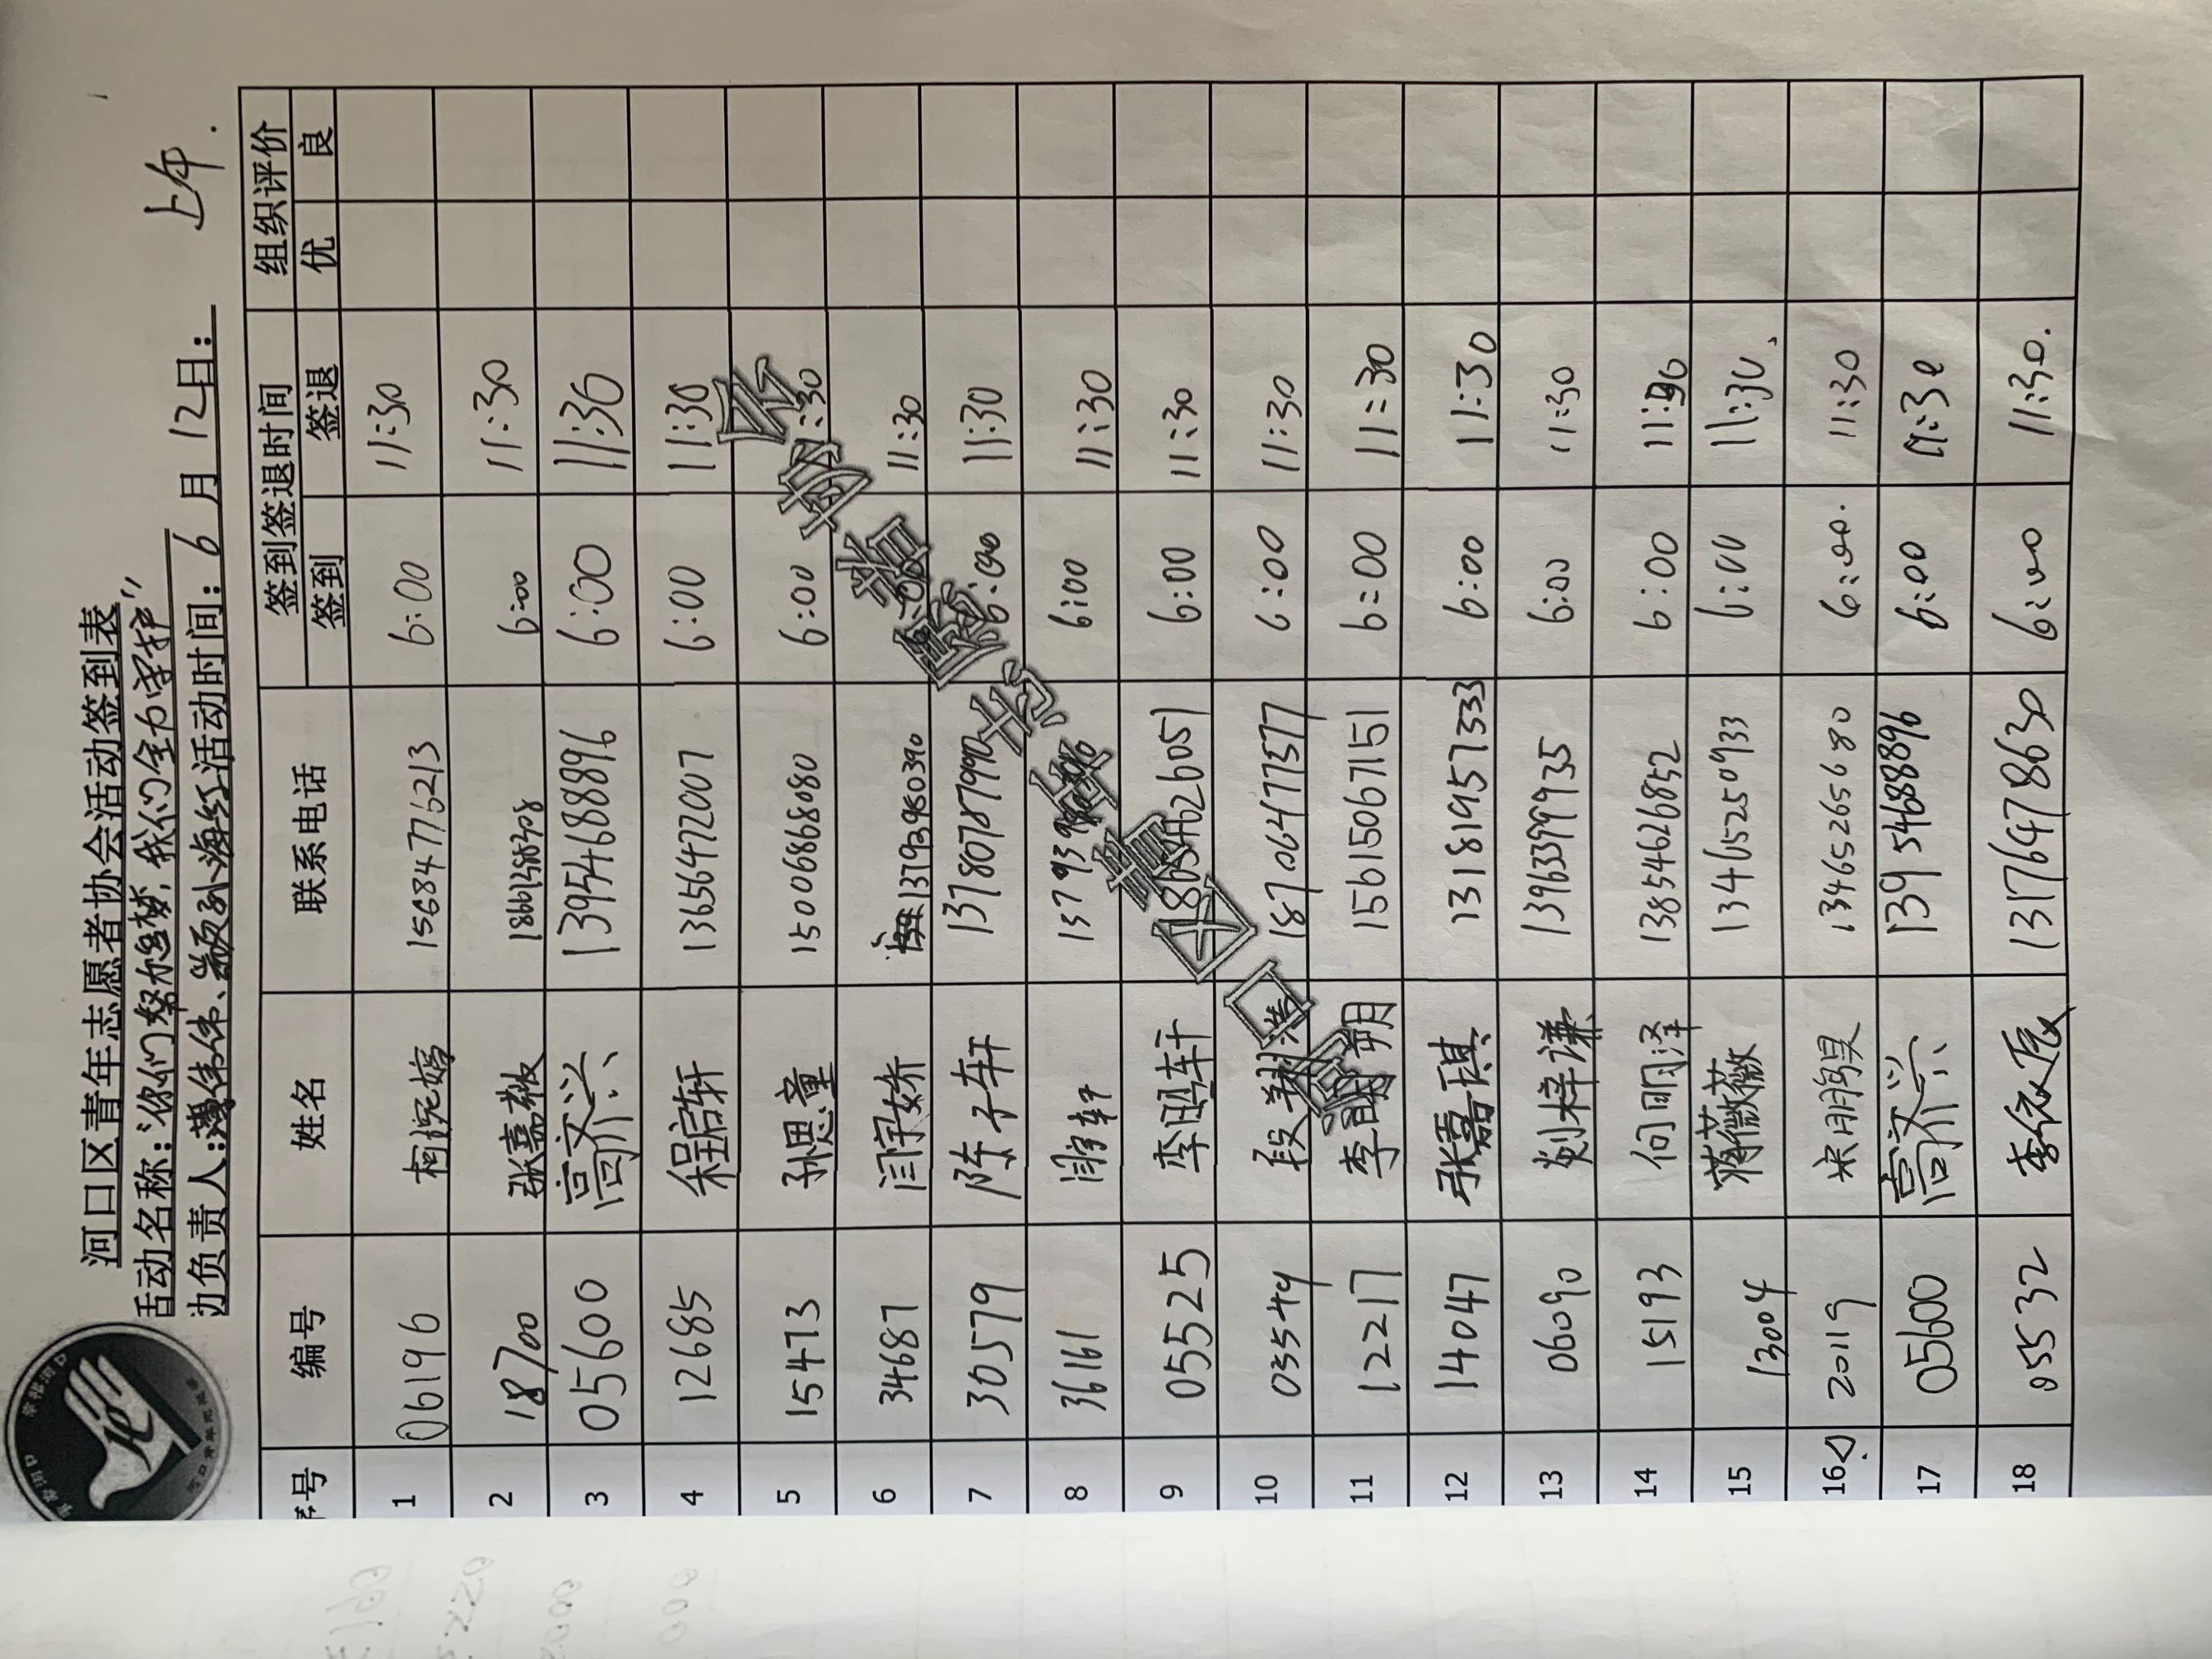 河口区青年志愿者协会活动签到表
活动名称："你们努力追梦，我们全力守护"
办负责人：薄伟伟、孙海红 活动时间：6月12日： 上午.
序号 编号 姓名 联系电话 签到签退时间 组织评价
签到 签退 优 良
1 06196 柯琬嫱 15684776213 6:00 11:30
2 18700 张嘉敏 6:00 11:30
3 05600 高文兴 13954688896 6:00 11:30
4 12685 程启轩 13656472007 6:00 11:30
5 15473 孙思童 15006868080 6:00 11:30
6 34687 闫宇娇 13793980390 6:00 11:30
7 30579 陈子轩 13780787990 6:00 11:30
8 36161 闫宇轩 6:00 11:30
9 05525 李昭轩 18654626051 6:00 11:30
10 03544 段翔浩 18706477377 6:00 11:30
11 12217 李朔 15615067151 6:00 11:30
12 14047 张嘉琪 13181957333 6:00 11:30
13 06090 梓谦 13963399935 6:00 11:30
14 15193 何明泽 13854626852 6:00 11:30
15 13004 蒋薇薇 13465250933 6:00 11:30、
16 20119 宋鹏昊 13465265680 6:00. 11:30
17 05600 高文兴 13954688896 6:00 11:30
18 05532 李依辰 13176478630 6:00 11:30.